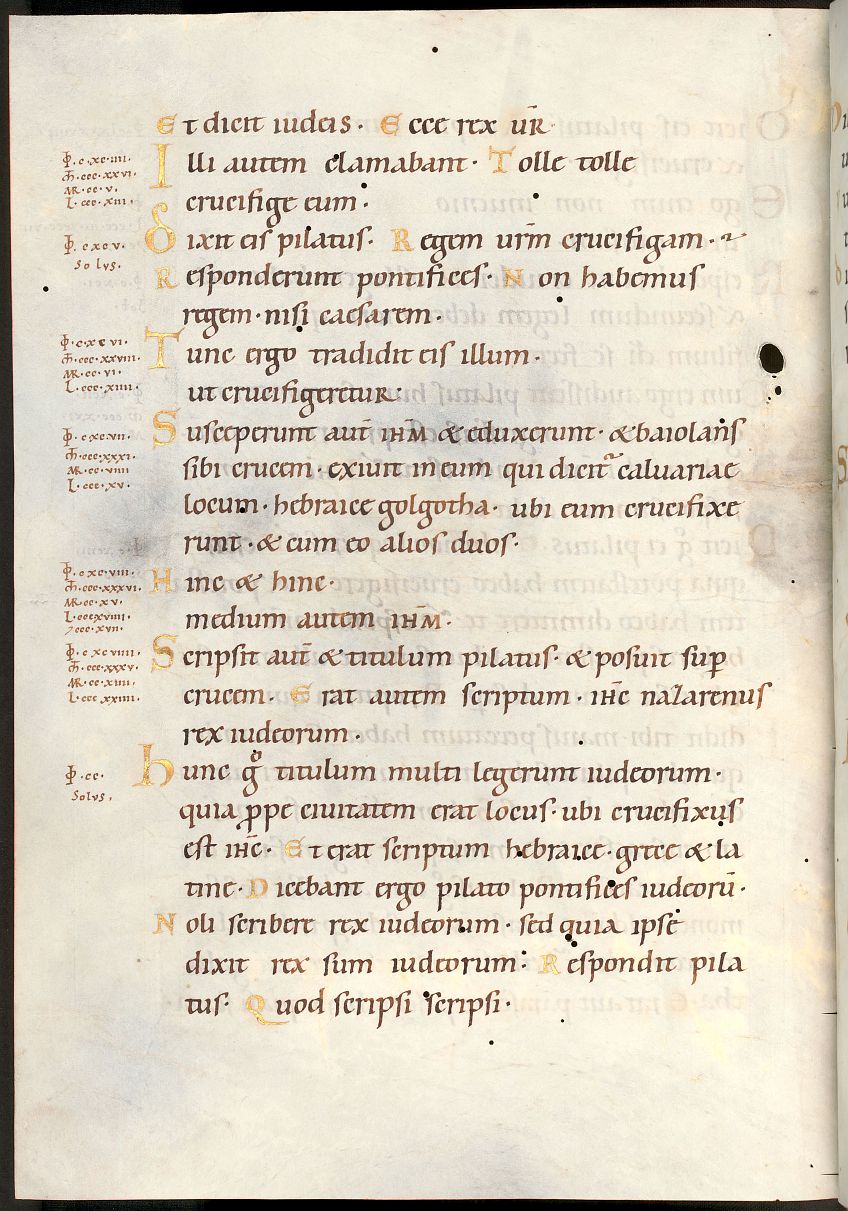 Et dicit iudeis. Ecce rex ur̄
Illi autem clamabant. Tolle tolle
crucifige eum.
Dixit eis pilatus. Regem urm̄ crucifigam.
Responderunt pontifices. Non habemus
regem. nisi caesarem.
Tunc ergo tradidit eis illum.
ut crucifigeretur:
Susceperunt aut̄ ihm̄ & eduxerunt. & baiolans
sibi crucem. exiuit in eum qui dicit᷑ caluariae
locum. hebraice golgotha. ubi eum crucifixe
runt. & cum eo alios duos.
Hinc & hinc.
medium autem ihm̄.
Scripsit aut̄ & titulum pilatus. & posuit sup̄
crucem. Erat autem scriptum. ihc̄ nazarenus
rex iudeorum.
Hunc gͦ titulum multi legerunt iudeorum.
quia ꝓpe ciuitatem erat locus. ubi crucifixus
est ihc̄. Et erat scriptum hebraice. grece & la
tine. Dicebant ergo pilato pontifices iudeorū.
Noli scribere rex iudeorum. sed quia ipse
dixit rex sum iudeorum: Respondit pila
tus. Quod scripsi scripsi.
c.xc.iiii.
ccc.xxvi.
MR.cc.v.
L.ccc.xiii.
c.xc.v.
Solus.
c.xc.vi.
ccc.xxviii.
MR.cc.vi.
L.ccc.xiiii.
c.xc.vii.
ccc.xxxi.
MR.cc.viiii
L.ccc.xv.
c.xc.viii.
ccc.xxxvi.
MR.cc.xv.
L.ccc.xviii.
7ccc.xvii.
c.xc.viiii.
ccc.xxxv.
MR.cc.xiiii.
L.ccc.xxiiii.
cc.
Solus.